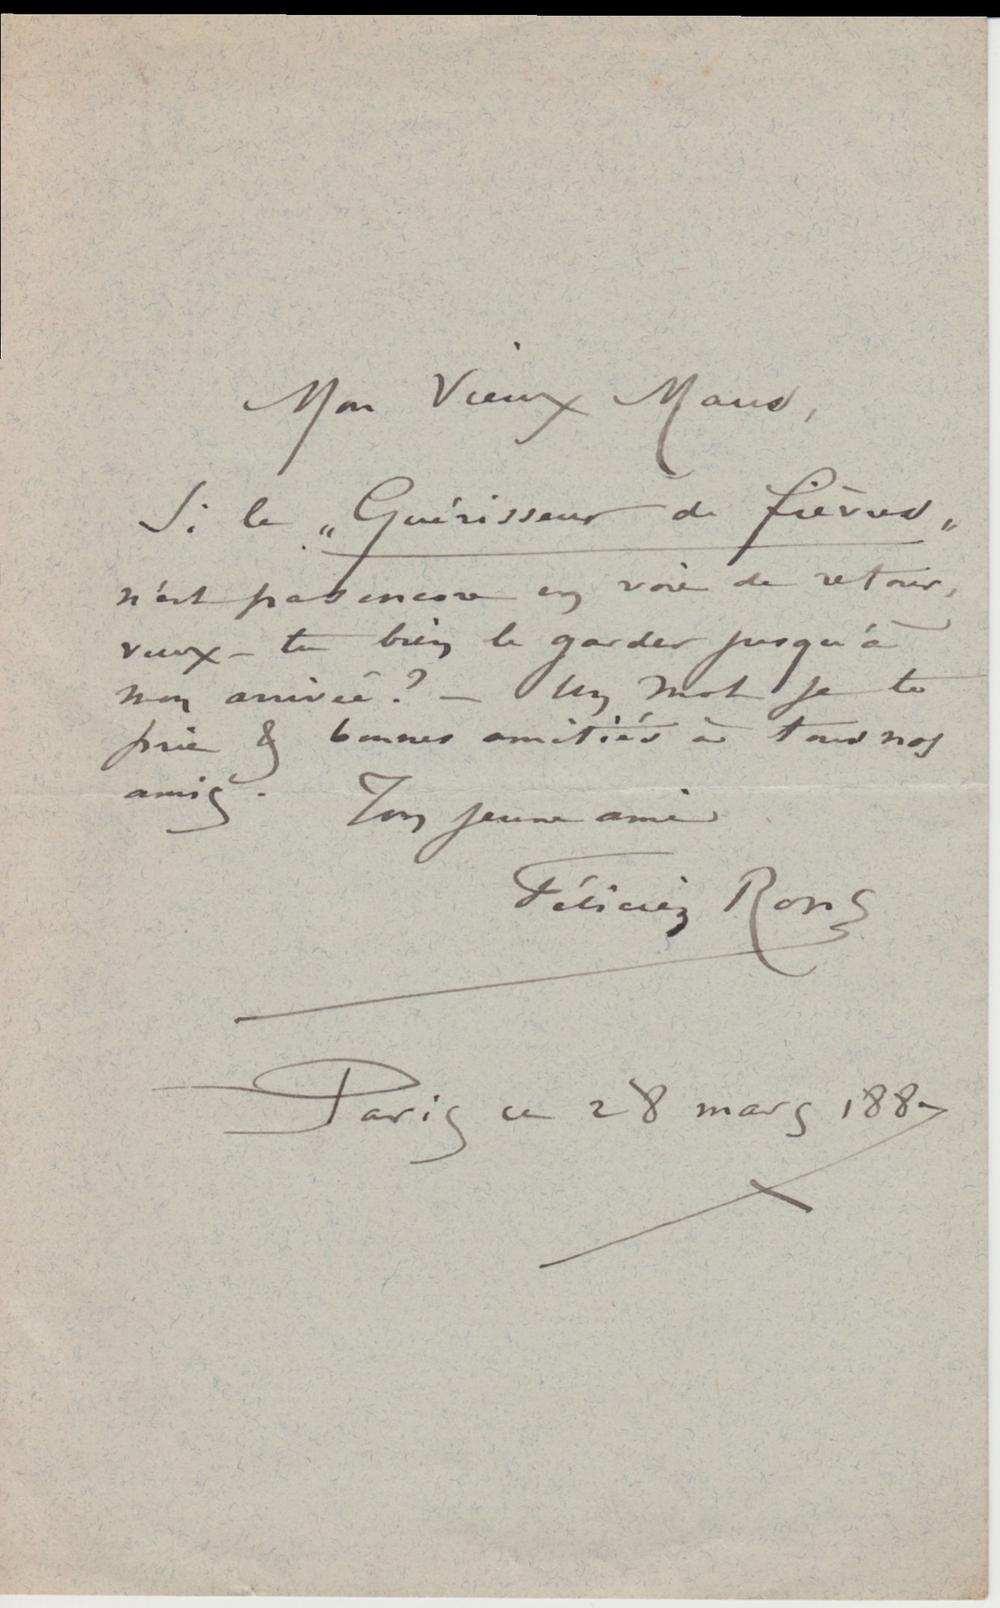 Mon Vieux Maus,
Si le „Guérisseur de fièvres„
n'est pas encore en voie de retour,
veux-tu bien le garder jusqu'à
mon arrivée? — Un mot je te
prie & bonnes amitiés à tous nos
amis.
Ton jeune ami
Félicien Rops
Paris ce 28 mars 1887